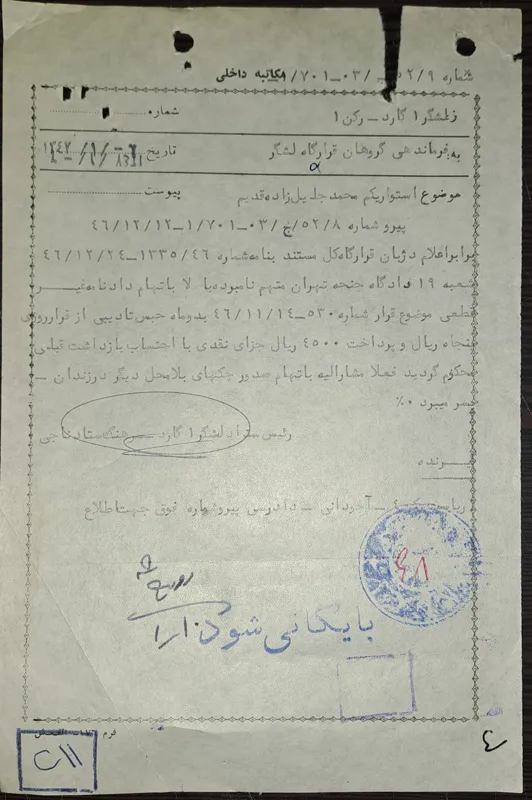 شماره ۵۲/۹/ /۰۳ـ۷۰۱/ مکاتبه داخلی
ز لشگر ۱ گارد ــ رکن ۱
شماره
به فرماندهی گروهان قرارگاه لشگر
تاریخ
موضوع استواریکم محمد جلیل زاده قدیم
پیوست
پیرو شماره ۵۲/۸/خ/۰۳/ ۷۰۱/۱ــ۴۶/۱۲/۱۲
برابر اعلام دژبان قرارگاه کل مستند بنامه شماره ۱۳۳۵/۴۶ــ۴۶/۱۲/۲۴
شعبه ۱۹ دادگاه جنحه تهران متهم نامبرده بالا باتهام دادنامه غیــر
قطعی موضوع قرار شماره ۵۳۰ــ۴۶/۱۱/۱۴ بدو ماه حبس تادیبی از قرار روزی
پنجاه ریال و پرداخت ۴۵۰۰ ریال جزای نقدی با احتساب بازداشت قبلی
محکوم گردید فعلا مشارالیه باتهام صدور چکهای بلامحل دیگر در زندان ــ
بسر میبرد ۰٪
رئیس ستاد لشگر ۱ گارد ــ سرهنگ ستاد
گیــرنده
ریاست رکن ٤ ــ آجودانی ــ دادرسی پیرو شماره فوق جهت اطلاع
بایگانی شود
فرم
٤